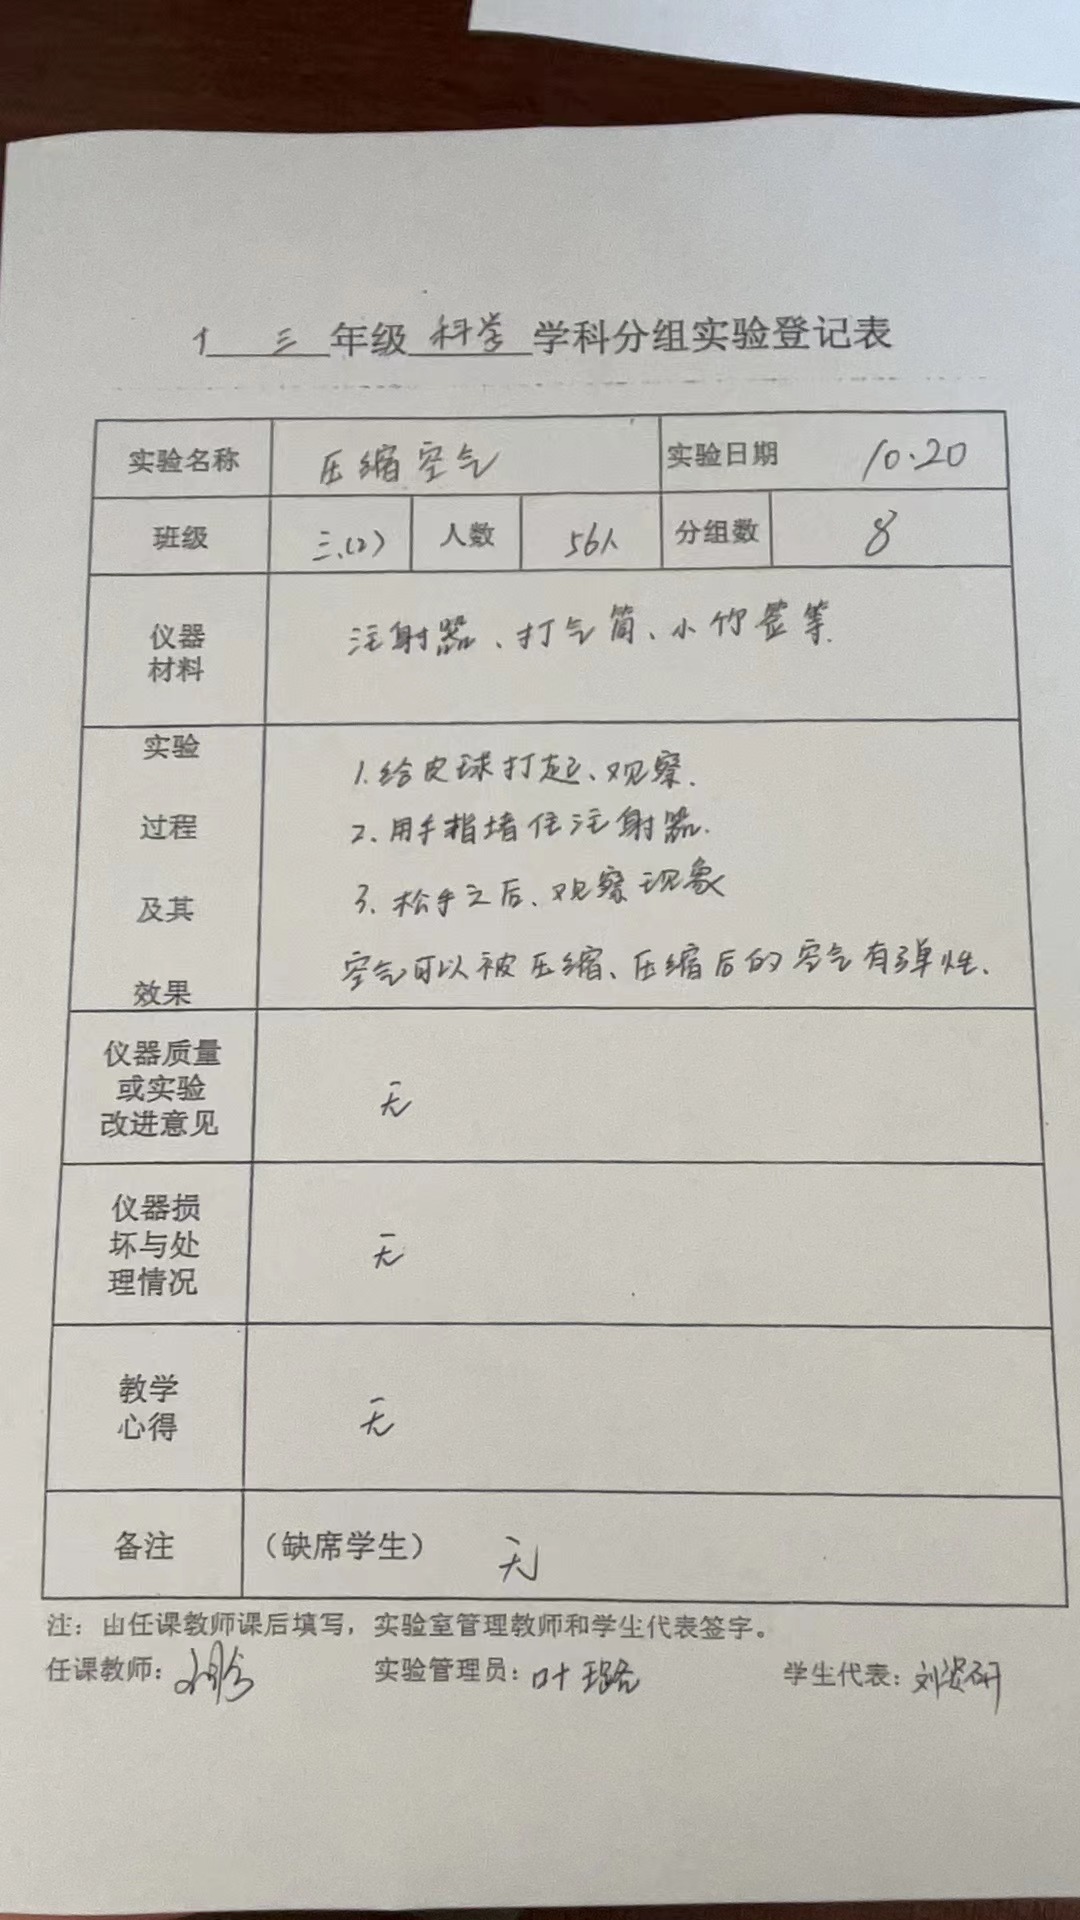 三 年级 科学 学科分组实验登记表
实验名称 压缩空气 实验日期 10.20
班级 三.(2) 人数 56人 分组数 8
仪器
材料
注射器、打气筒、小竹签等.
实验
过程
及其
效果
1.给皮球打起、观察.
2、用手指堵住注射器.
3、松手之后、观察现象
空气可以被压缩、压缩后的空气有弹性、
仪器质量
或实验
改进意见
无
仪器损
坏与处
理情况
无
教学
心得
无
备注 (缺席学生) 无
注：由任课教师课后填写，实验室管理教师和学生代表签字。
任课教师： 实验管理员：叶璐 学生代表：刘姿研